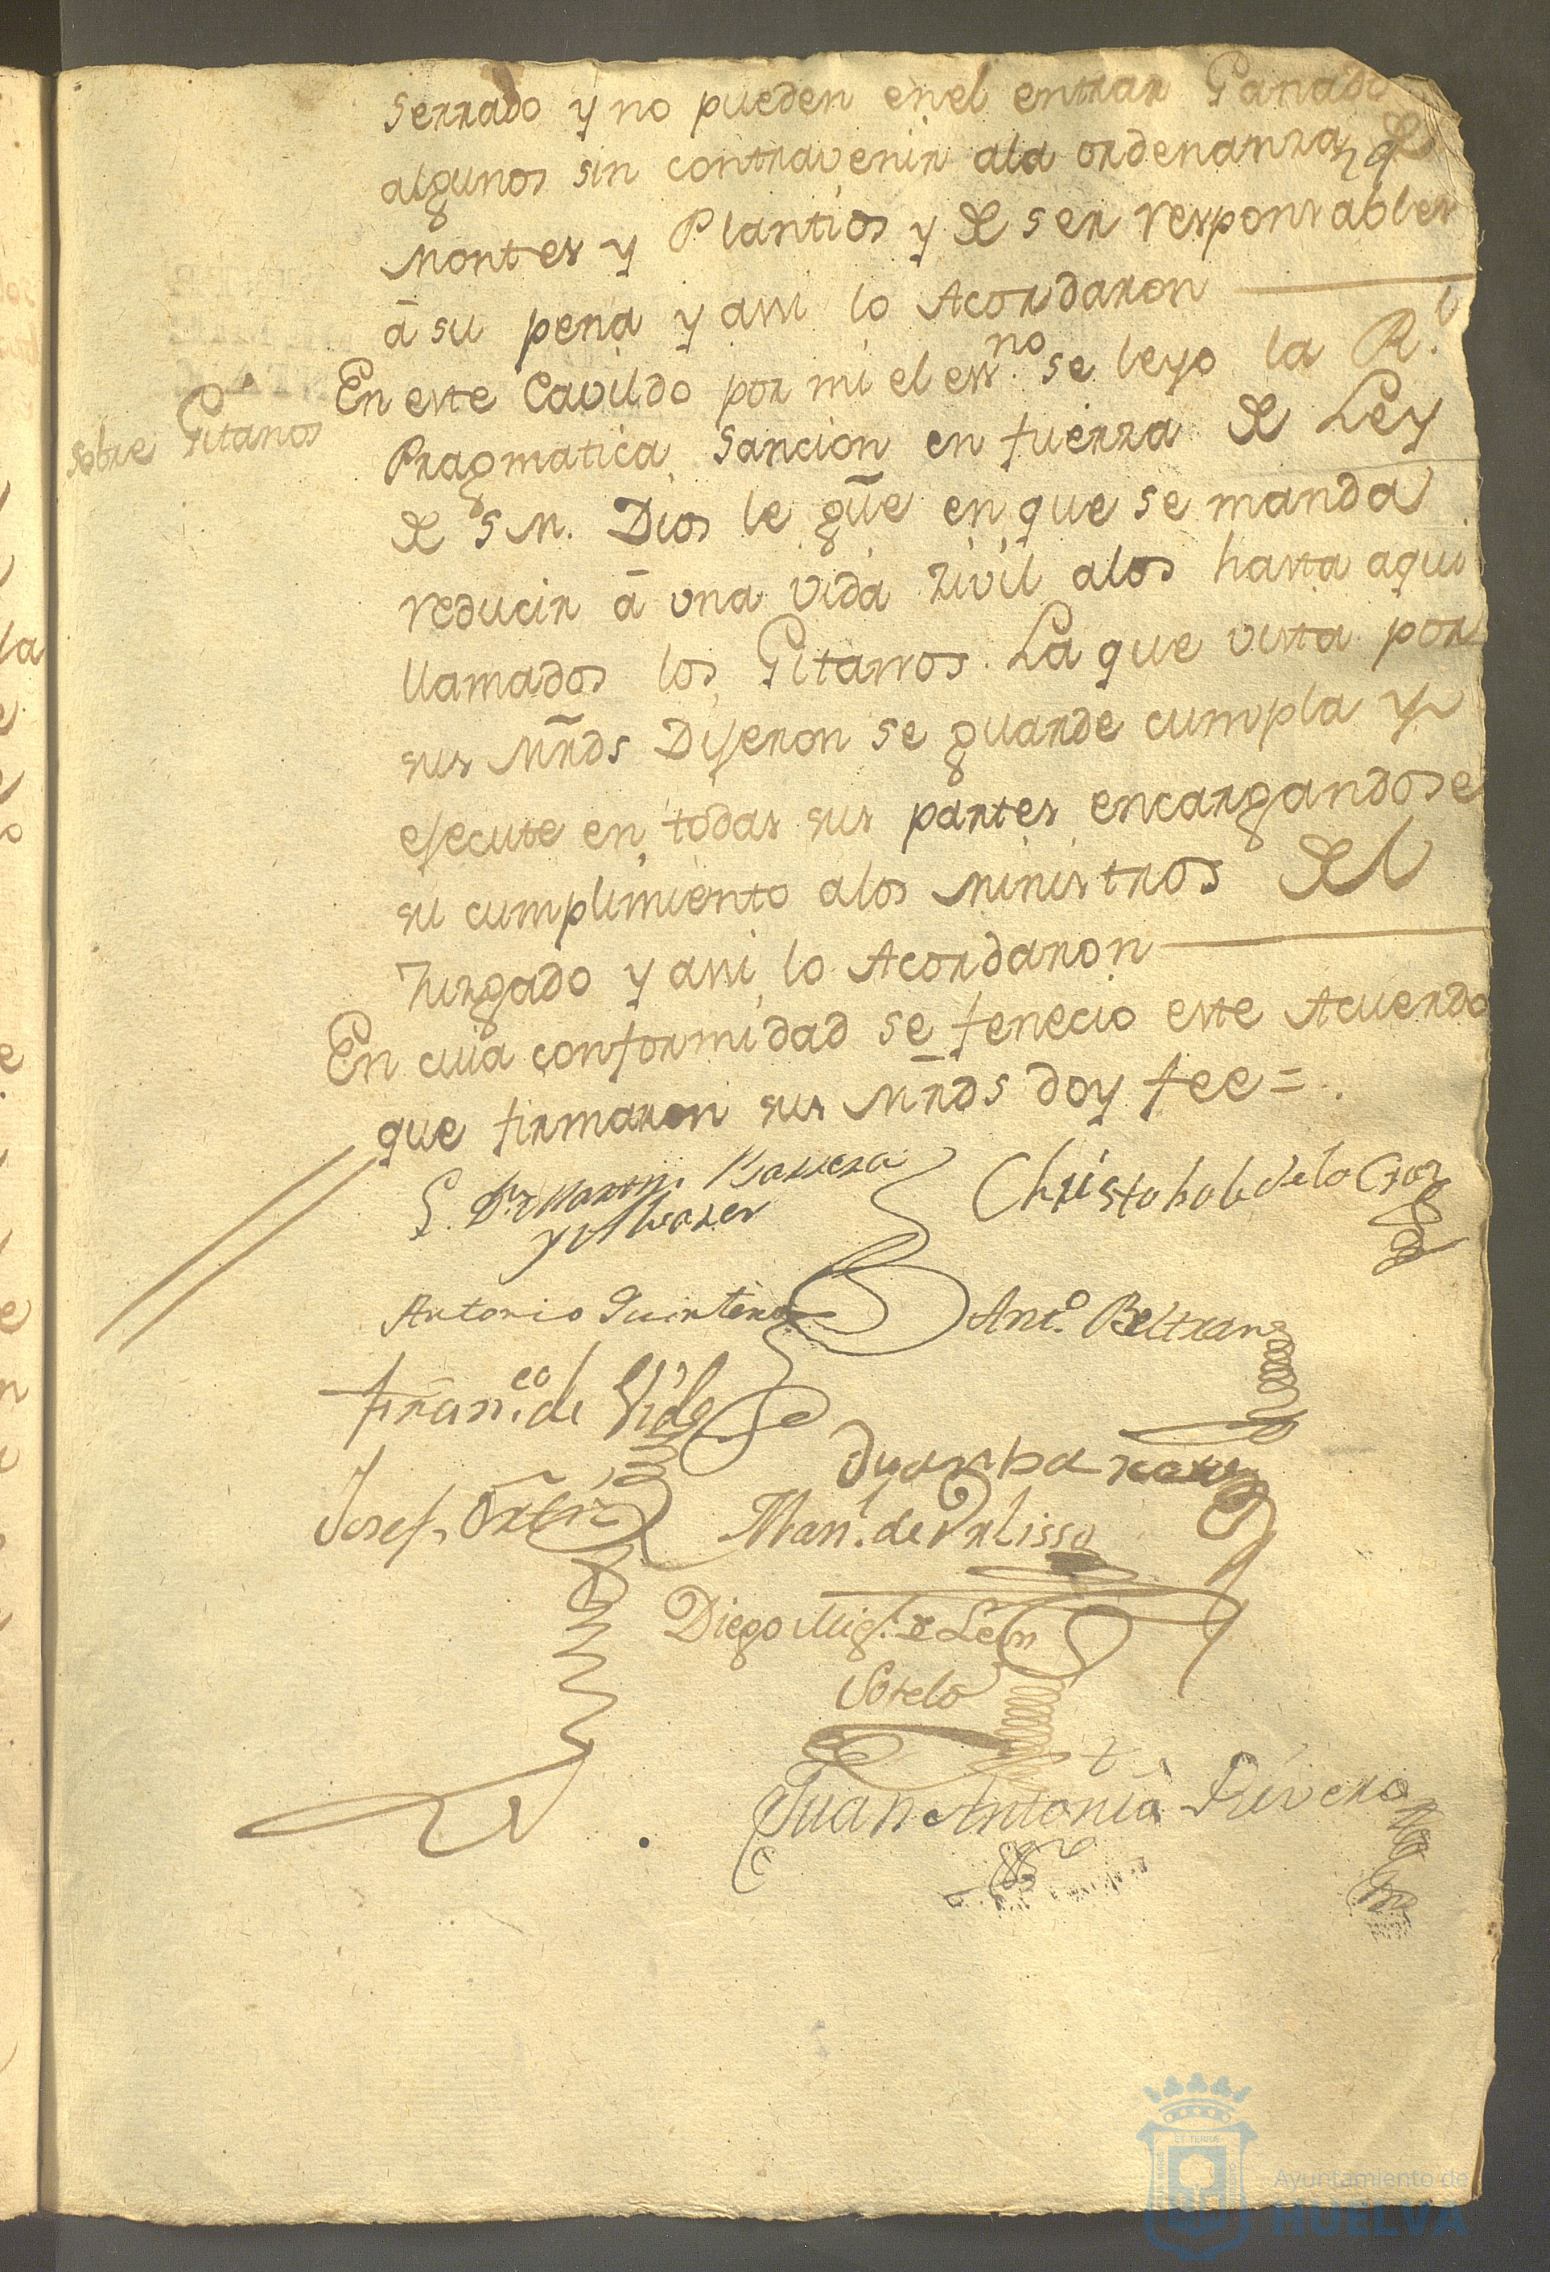 serrado y no pueden enel entrar Ganado
algunos sin contravenir ala ordenanza de
Montes y Plantios y de ser responsables
â su pena y assi lo Acordaron
sobre Gitanos
En este Cavildo por mi el ess.no se leyo la R.l
Pragmatica Sancion en fuerza de Ley
de S M. Dios le gūe en que se manda
reducir â una vida zivil alos hasta aqui
llamados los Gitanos. La que vista por
sus Mr̃ds Dijeron se guarde cumpla y
ejecute en todas sus partes encargandose
su cumplimiento alos Ministros del
Juzgado y assi lo Acordaron
En cuia conformidad se fenecio este Acuerdo
que firmaron sus Mr̃ds doy fee =.
Barrera
y Alvarez
Christobal de la Cruz
Antonio Quintero
Ant.o Beltran
Fran.co de Vides
Josef Ortiz
Man.l de
Diego Mig.l de León
Sotelo
Juan Antonio Rivera
Ayuntamiento de
HUELVA